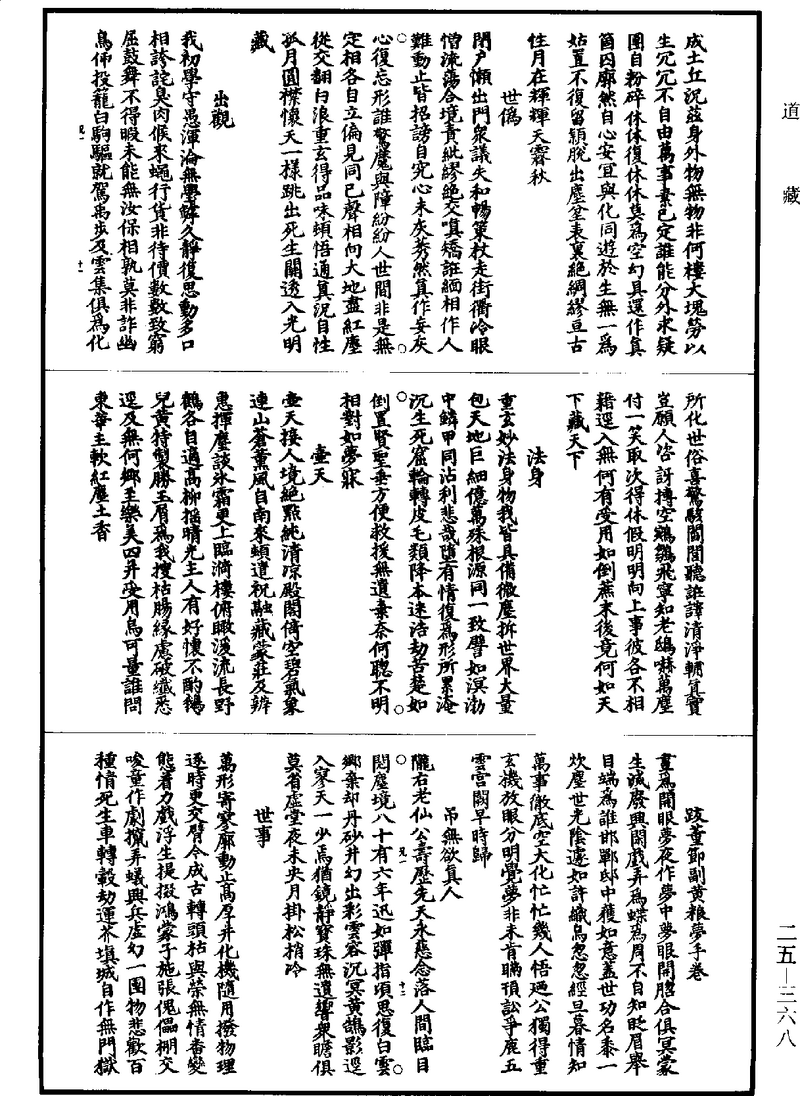 道藏
成土丘況茲身外物無物非何樓大塊勞以
生冗冗不自由萬事素已定誰能分外求疑
團自粉碎休休復休休莫為空幻具還作真
箇囚廓然自心安宜與化同遊於生無一為
姑置不復留穎脫出塵坌表裏絕綢繆亘古
性月在輝輝天霽秋
世偽
閉戶懶出門衆議失和暢策杖走街衢冷眼
憎流蕩合境責紕繆絕交嗔矯誑緬相作人
難動止皆招謗自究心未灰莠然真作妄灰
心復忘形誰驚魔與障紛紛人世間非是無
定相各自立偏見同已聲相向大地盡紅塵
從交翻白浪重玄得品味頓悟通真況自性
孤月圓襟懷天一樣跳出死生關透入光明
藏
出觀
我初學守愚渾淪無璺罅久靜復思動多口
相誇詫臭肉候來蠅行貨非待價數數致窮
屈鼓舞不得暇未能無汝保相孰莫非詐幽
鳥倦投籠白駒驅就駕禹步及雲集俱為化
所化世俗喜驚駭閭閻聽誑譁清淨輞質實
豈願人咨訝摶空鷄鶵飛寧知老鴟嚇萬塵
付一笑取次得休假明明向上事彼各不相
藉逕入無何有受用如倒蔗末後竟何如天
下藏天下
法身
重玄妙法身物我皆具備微塵拆世界大量
包天地巨細億萬殊根源同一致譬如溟渤
中鱗甲同沾利悲哉墮有情復為形所累淹
沉生死窟輪轉皮毛類降本迷浩劫苦楚如
倒置賢聖垂方便救援無遺棄奈何聰不明
相對如夢寐
壺天
壺天接人境絕點純清凉殿閣倚空碧氣象
連山蒼薰風自南來頓遣祝融藏蒙莊及辨
惠揮麈談氷霜更上臨漪樓俯瞰湲流長野
鶴各自適高柳摇晴光主人有好懷不酌鵝
兒黃特製勝玉屑為我搜枯腸緣慮破纖悉
逕及無何鄉至樂美四并受用烏可量誰問
東華主軟紅塵土香
跋董節副黃粮夢手卷
晝為開眼夢夜作夢中夢眼開膽合俱冥蒙
生滅廢興閑戲弄為蝶為周不自知眨眉舉
目端為誰邯鄲邸中獲如意蓋世功名黍一
炊塵世光陰遽如許織烏忽忽經旦暮情知
萬事徹底空大化忙忙幾人悟廼公獨得重
玄機放眼分明覺夢非未肯瞞頇訟爭鹿五
雲宮闕早時歸
吊無欲真人
隴右老仙公壽歷先天永慈念落人間臨目
閱塵境八十有六年迅如彈指頃思復白雲
鄉棄却丹砂井幻出彩雲容沉冥黃鵠影逕
入寥天一少焉猶鏡靜寶珠無遺響衆瞻俱
莫省虛堂夜未央月掛松梢冷
世事
萬形寄寥廓動止高厚并化機隨用撥物理
逐時更交臂今成古轉頭枯與榮無情畨變
態着力戲浮生提掇鴻蒙子施張傀儡棚交
唆童作劇攛弄蟻興兵虛幻一團物悲歡百
種情死生車轉轂劫運芥填城自作無門獄
二五—三六八